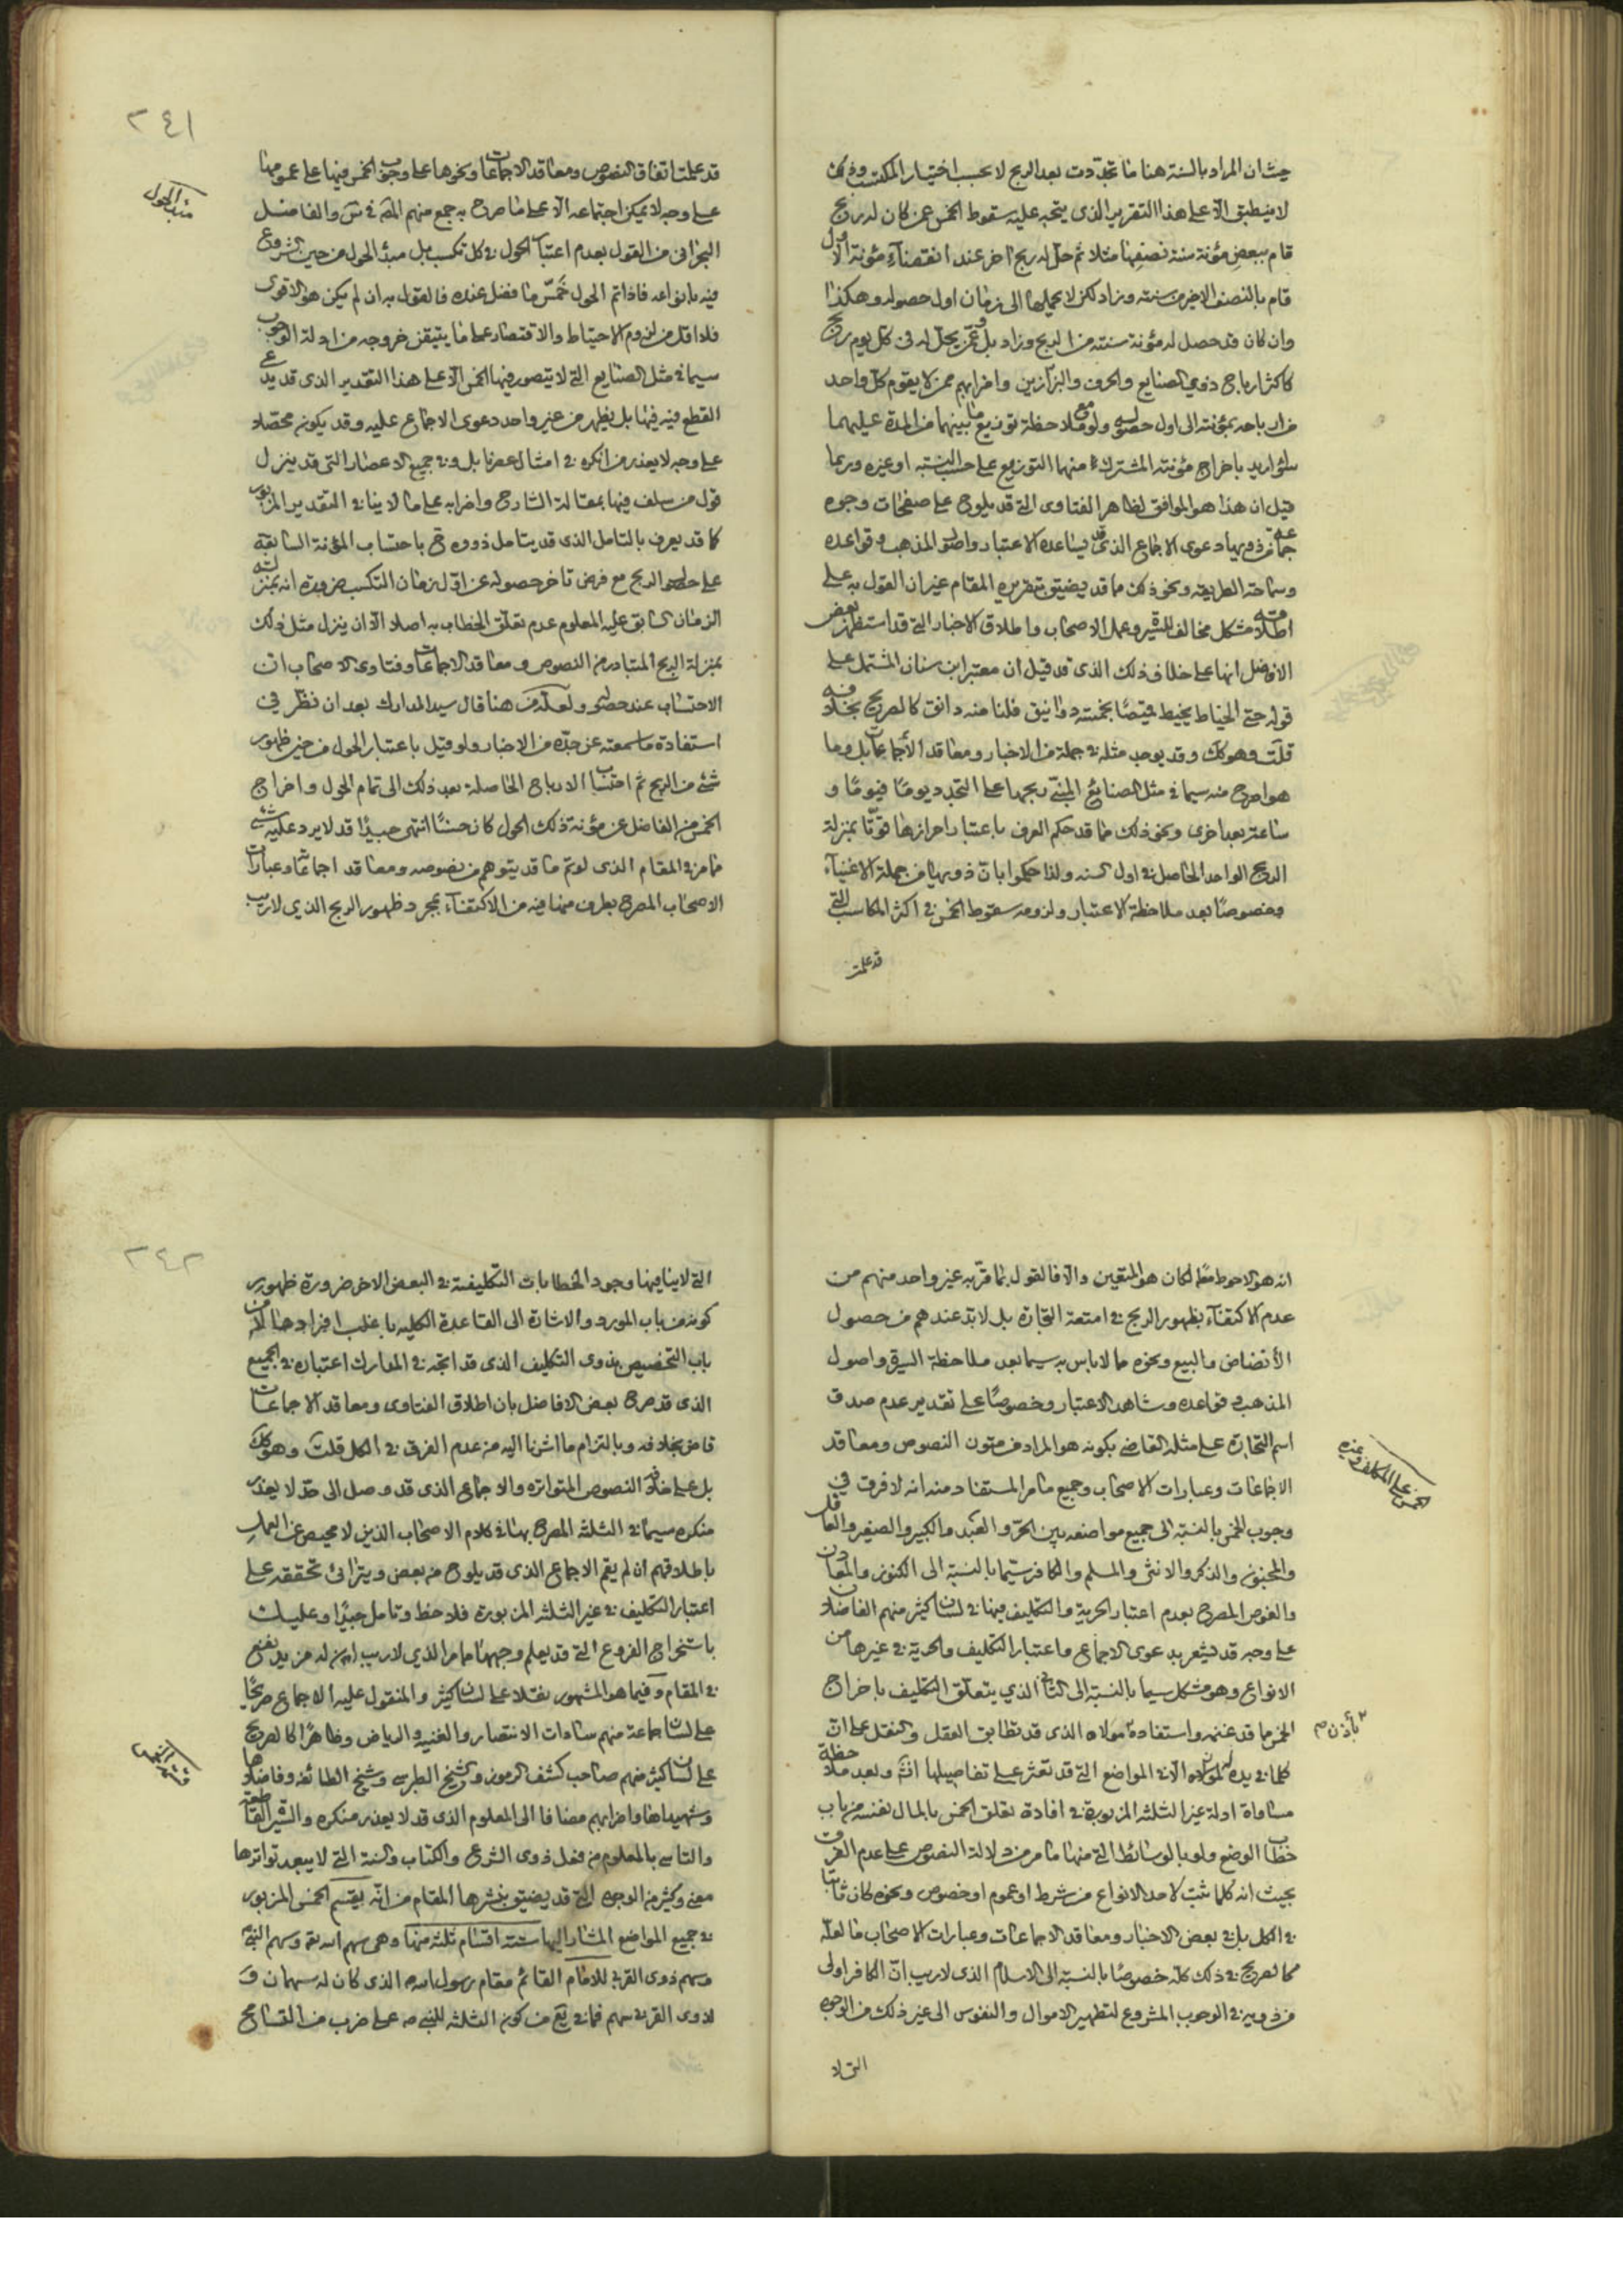 حيث ان المراد بالسنة هنا ما تجددت بعد الربح لا بحسب اختيار المكتسب وذلك
لا ينطبق الا على هذا التقرير الذى يتجه عليه سقوط الخمس عمن كان له ربح
قام ببعض مؤنة سنة نصفها مثلا ثم حل له ربح اخر عند انقضاء مؤنة الاول
قام بالنصف الاخر من سنته وزاد لكن لا يحملها الى زمان اول حصوله وهكذا
وان كان قد حصل له مؤنة سنته من الربح وزاد بل وعمن يحل له فى كل يوم ربح
كاكثار رباح ذوى الصنايع والحرف والبزازين واضرابهم ممن لا يقوم كل واحد
من ارباحه بمؤنته الى اول حصوله ولو مع ملاحظة توزيع ما بينهما من المدة عليهما
سواء اريد باخراج مؤنته المشترك منهما التوزيع على حسب النسبة او غيره وربما
قيل ان هذا هو الموافق لظاهر الفتاوى التى قد يلوح على صفحات وجوه
جماعة من ذويها دعوى الاجماع الذى قد يساعده الاعتبار واصول المذهب وقواعده
وسماحة الطريقة ونحو ذلك مما قد يضيق بتقريره المقام غير ان القول به على
اطلاقه مشكل مخالف للسيرة وعمل الاصحاب واطلاق الاخبار التى قد استظهر بعض
الافاضل انها على خلاف ذلك الذى قد قيل ان معتبر ابن سنان المشتمل على
قوله حتى الخياط يخيط قميصا بخمسة دوانيق فلنا منه دانق كالصريح بخلافه
قلت وهو كك وقد يوجد مثله فى جملة من الاخبار ومعاقد الاجماعات بل وما
هو اصرح منه سيما فى مثل الصنايع المبنى ربحها على التجدد يوما فيوما و
ساعة بعد اخرى ونحو ذلك مما قد حكم العرف باعتبار احرازها قوتا بمنزلة
الربح الواحد الحاصل فى اول السنه ولذا حكموا بان ذويها من جملة الاغنياء
وخصوصا بعد ملاحظة الاعتبار ولزومه سقوط الخمس فى اكثر المكاسب التى
قد علمت
٢٤١
مبدء الحول
قد علمت اتفاق النصوص ومعاقد الاجماعات ونحوها على وجوب الخمس فيها على عمومها
على وجه لا يمكن اجتماعه الا على ما صرح به جمع منهم الشهيد فى س والفاضل
البحرانى من القول بعدم اعتبار الحول فى كل تكسب بل مبدء الحول من حين الشروع
فيه بانواعه فاذا تم الحول خمس ما فضل عنده فالقول به ان لم يكن هو الاقوى
فلا اقل من لزوم الاحتياط والاقتصار على ما يتيقن خروجه من ادلة الوجوب
سيما فى مثل الصنايع التى لا يتصور فيها الخمس الا على هذا التقدير الذى قد يدعى
القطع فيه فيها بل يظهر من غير واحد دعوى الاجماع عليه وقد يكون محصلا
على وجه لا يعذر من انكره فى امثال عصرنا بل وفى جميع الاعصار التى قد ينزل
قول من سلف فيها بمقالة الشارح واضرابه على ما لا ينافى التقدير المزبور
كما قد يعرف بالتامل الذى قد يتامل ذووه فى احتساب المؤنة السابقة
على حصول الربح مع فرض تاخر حصوله عن اول زمان التكسب ضرورة انه بمنزلة
الزمان السابق عليه المعلوم عدم تعلق الخطاب به اصلا الا ان ينزل مثل ذلك
بمنزلة الربح المتبادر من النصوص ومعاقد الاجماعات وفتاوى الاصحاب ان
الاحتساب عند حصوله ولعله من هنا قال سيد المدارك بعد ان نظر فى
استفادة ما سمعته عن جده من الاخبار ولو قيل باعتبار الحول من حين ظهور
شئ من الربح ثم احتساب الارباح الحاصلة بعد ذلك الى تمام الحول واخراج
الخمس من الفاضل عن مؤنة ذلك الحول كان حسنا انتهى جيدا قد لا يرد عليه شئ
مما مر فى المقام الذى لو تم ما قد يتوهم من نصوصه ومعاقد اجماعاته وعبارات
الاصحاب المصرح بطرف منها فيه من الاكتفاء بمجرد ظهور الربح الذى لا ريب
انه هو الاحوط معلم لكان هو المتعين والا فالقول بما قربه غير واحد منهم من
عدم الاكتفاء بظهور الربح فى امتعة التجارة بل لابد عندهم من حصول
الانضاض والبيع ونحوه مما لا باس به سيما بعد ملاحظة السيرة واصول
المذهب وقواعده وشاهد الاعتبار وخصوصا على تقدير عدم صدق
اسم التجارة على مثله القاضى بكونه هو المراد من متون النصوص ومعاقد
الخمس على المكلف وغيره
الاجماعات وعبارات الاصحاب وجميع ما مر المستفاد منه انه لا فرق فى
وجوب الخمس بالنسبة الى جميع مواضعه بين الحر والعبد والكبير والصغير والعاقل
والمجنون والذكر والانثى والمسلم والكافر سيما بالنسبة الى الكنوز والمعادن
والغوص المصرح بعدم اعتبار الحرية والتكليف فيها فى لسان كثير منهم الفاضلان
على وجه قد يشعر بدعوى الاجماع واعتبار التكليف والحرية فى غيرها من
الانواع وهو مشكل سيما بالنسبة الى الثانى الذى يتعلق التكليف باخراج
الخمس مما قد غنمه واستفاده مولاه الذى قد تطابق العقل والنقل على ان
باذن م
كلما فى يده لمولاه الا فى المواضع التى قد تعثر على تفاصيلها انشه وبعد ملاحظة
مساواة ادلة غير الثلثة المزبورة فى افادة تعلق الخمس بالمال نفسه من باب
خطاب الوضع ولو بالوسائط التى منها ما مر من دلالة النصوص على عدم الفرق
بحيث انه كلما ثبت لاحد الانواع من شرط او عموم او خصوص ونحوه كان ثابتا
فى الكل بل فى بعض الاخبار ومعاقد الاجماعات وعبارات الاصحاب ما لعله
كالصريح فى ذلك كله خصوصا بالنسبة الى الاسلام الذى لا ريب ان الكافر اولى
من ذويه فى الوجوب المشروع لتطهير الاموال والنفوس الى غير ذلك من الوجوه
التى لا
٢٤٢
التى لا ينافيها وجود الخطابات التكليفية فى البعض الاخر ضرورة ظهور
كونه من باب المورد والاشارة الى القاعدة الكليه باغلب افرادها لا من
باب التخصيص بذوى التكليف الذى قد اتجه فى المدارك اعتباره فى الجميع
الذى قد صرح بعض الافاضل بان اطلاق الفتاوى ومعاقد الاجماعات
قاض بخلافه وبالتزام ما اشرنا اليه من عدم الفرق فى الكل قلت وهو كك
بل على خلافه النصوص المتواتره والاجماع الذى قد وصل الى حد لا يعذر
منكره سيما فى الثلثة المصرح بها فى كلام الاصحاب الذين لا محيص عن العمل
باطلاقهم ان لم يقم الاجماع الذى قد يلوح من بعض ويترائى تحققه على
اعتبار التكليف فى غير الثلثة المزبورة فلاحظ وتامل جيدا وعليك
باستخراج الفروع التى قد يعلم وجهها مما مر الذى لا ريب ان له مزيد نفع
فى المقام وفيما هو المشهور نقلا على لسان كثير والمنقول عليه الاجماع صريحا
على لسان جماعة منهم سادات الانتصار والغنيه والرياض وظاهرا كالصريح
قسمة الخمس
على لسان كثير منهم صاحب كشف الرموز والشيخ الطبرسى وشيخ الطائفه وفاضلاها
وشهيداها واضرابهم مضافا الى المعلوم الذى قد لا يعذر منكره والسيرة القاطعة
والتاسى بالمعلوم من فعل ذوى الشرع والكتاب والسنة التى لا يبعد تواترها
معنى وكثير من الوجوه التى قد يضيق بنشرها المقام من انه يقسم الخمس المزبور
فى جميع المواضع المشار اليها ستة اقسام ثلثة منها وهى سهم الله تع وسهم النبى
وسهم ذوى القربى للامام القائم مقام رسول الله ص الذى كان له سهمان و
لذوى القربى سهم فما فى يع من كون الثلثه للنبى ص على ضرب من التسامح